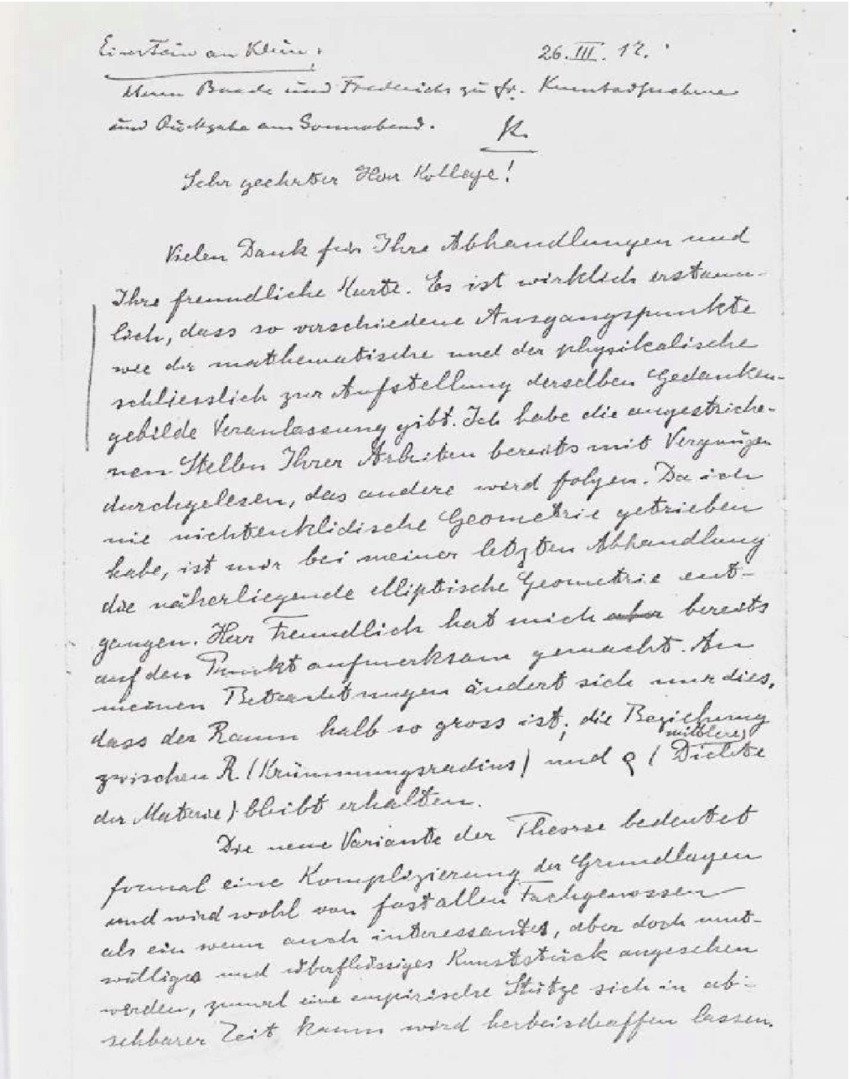 Einstein an Klein:
26. III. 17.
Herrn Baade und Frederichs zu fr. Kenntnisnahme
und Rückgabe am Sonnabend.
K.
Sehr geehrter Herr Kollege!
Vielen Dank für Ihre Abhandlungen und
Ihre freundliche Karte. Es ist wirklich erstaun-
lich, dass so verschiedene Ausgangspunkte
wie der mathematische und der physikalische
schliesslich zur Aufstellung derselben Gedanken-
gebilde Veranlassung gibt. Ich habe die angestriche-
nen Stellen Ihrer Arbeiten bereits mit Vergnügen
durchgelesen, das andere wird folgen. Da ich
nie nichteuklidische Geometrie getrieben
habe, ist mir bei meiner letzten Abhandlung
die näherliegende elliptische Geometrie ent-
gangen. Herr Freundlich hat mich aber bereits
auf den Punkt aufmerksam gemacht. An
meinen Betrachtungen ändert sich nur dies,
dass der Raum halb so gross ist; die Beziehung
zwischen R (Krümmungsradius) und ρ (mittlere Dichte
der Materie) bleibt erhalten.
Die neue Variante der Theorie bedeutet
formal eine Komplizierung der Grundlagen
und wird wohl von fast allen Fachgenossen
als ein wenn auch interessantes, aber doch mut-
williges und überflüssiges Kunststück angesehen
werden, zumal eine empirische Stütze sich in ab-
sehbarer Zeit kaum wird herbeischaffen lassen.